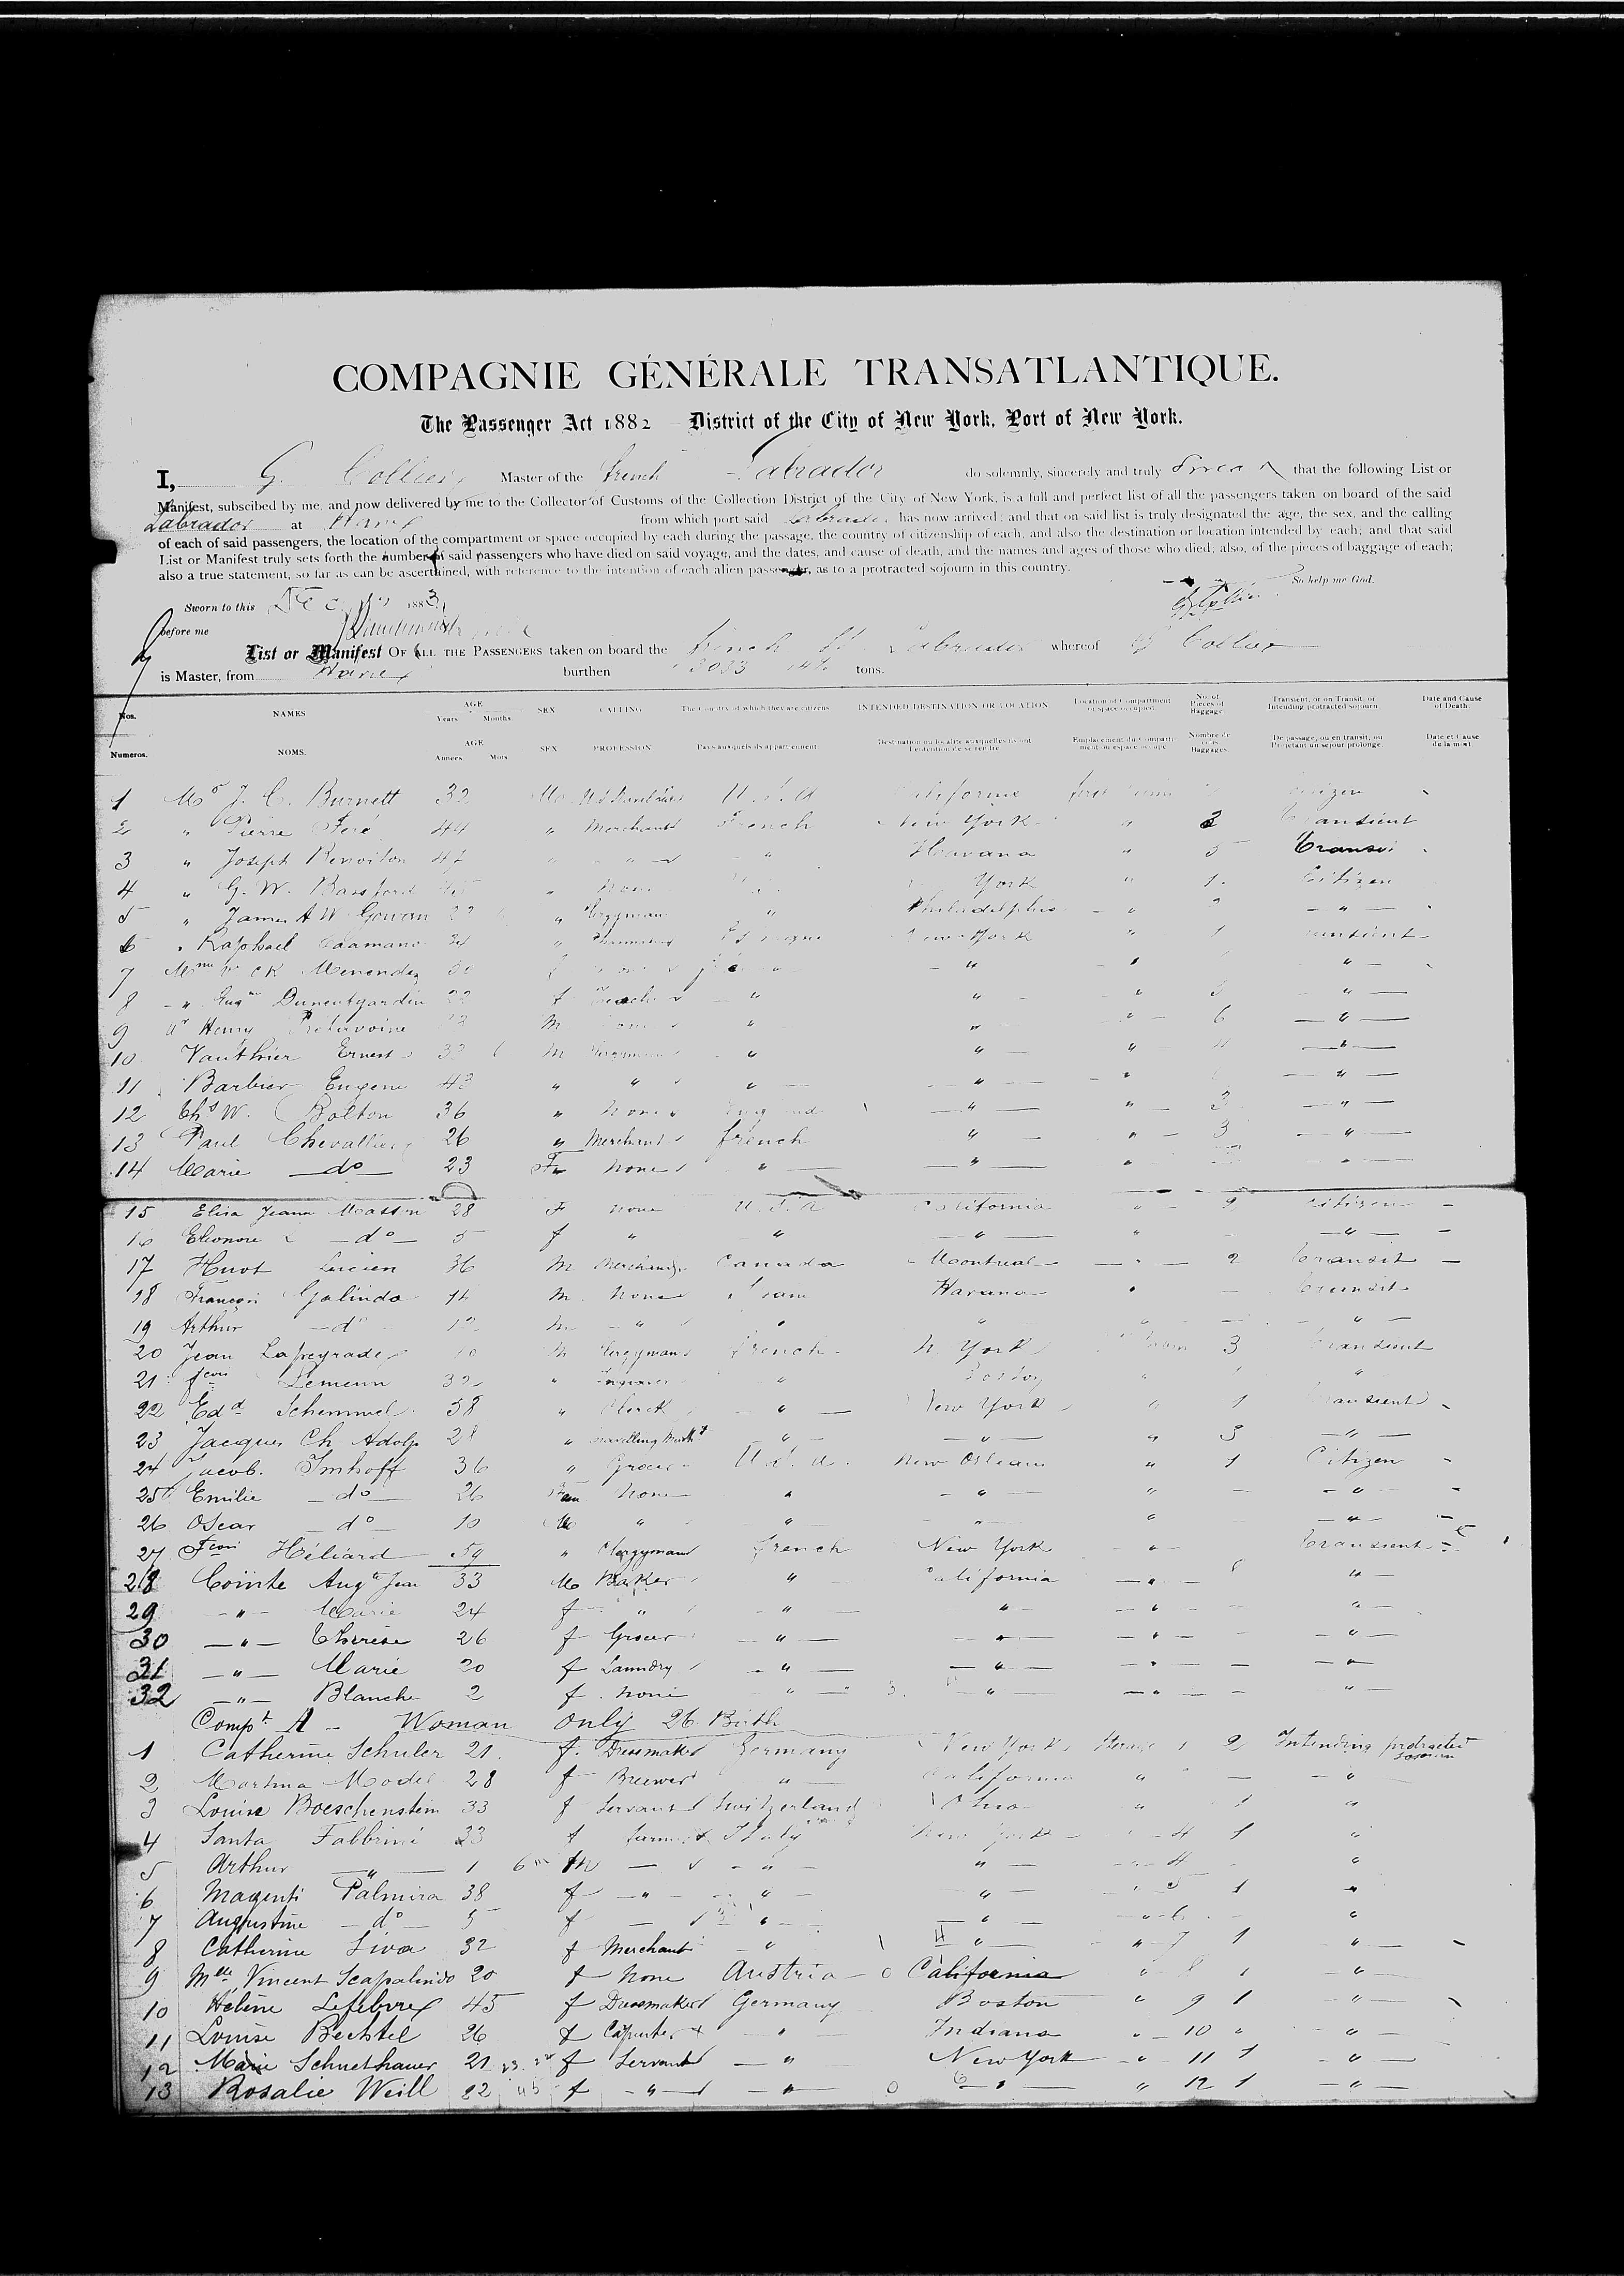 COMPAGNIE GÉNÉRALE TRANSATLANTIQUE.
The Passenger Act 1882 District of the City of New York, Port of New York.
I, G. Collier Master of the French Labrador do solemnly, sincerely and truly Swear that the following List or
Manifest, subscibed by me, and now delivered by me to the Collector of Customs of the Collection District of the City of New York, is a full and perfect list of all the passengers taken on board of the said
Labrador at Havre from which port said Labrador has now arrived; and that on said list is truly designated the age, the sex, and the calling
of each of said passengers, the location of the compartment or space occupied by each during the passage, the country of citizenship of each, and also the destination or location intended by each; and that said
List or Manifest truly sets forth the number of said passengers who have died on said voyage, and the dates, and cause of death, and the names and ages of those who died; also, of the pieces of baggage of each;
also a true statement, so far as can be ascertained, with reference to the intention of each alien passenger, as to a protracted sojourn in this country.
So help me God.
Sworn to this Dec 1883
G Collier
before me
List or Manifest OF ALL THE PASSENGERS taken on board the French Labrador whereof G Collier
is Master, from Havre burthen 3083 tons.
Nos. NAMES AGE Years Months SEX CALLING The Country of which they are citizens INTENDED DESTINATION OR LOCATION Location of Compartment or space occupied. No. of Pieces of Baggage. Transient, or on Transit, or Intending protracted sojourn. Date and Cause of Death.
Numeros. NOMS. AGE Années Mois SEX PROFESSION Pays auxquels ils appartiennent. Destination ou localité auxquelles ils ont l'entention de se rendre Emplacement du Comparti- ment ou espace occupé Nombre de colis Baggages. De passage, ou en transit, ou Projetant un séjour prolongé. Date et Cause de la mort.
1 Mr J. C. Burnett 32 M U.S.A Californie first Citizen
2 " Pierre Feré 44 " Merchant French New York " 3 Transient
3 " Joseph Benoiton " " " Havana " 5 Transit
4 " G. W. Bassford " None York " 1 Citizen
5 " James A W Gowan " Clergyman " Philadelphia " "
6 " Raphael Caamano 34 " New York " 1 Transient
7 Mme Menendez " "
8 " Dumentgardin f " " " 3 "
9 Mr Henry M " " " 6 "
10 Vauthier Ernest 33 M Clergyman " " " "
11 Barbier Eugene 43 " " " " " "
12 Chs W. Bolton 36 " None England " " 3 "
13 Paul Chevallier 26 " Merchant french " " 3 "
14 Marie do 23 F None " " " "
15 Elisa Jeanne Masson 28 F None U.S.A California " 2 Citizen
16 Eleonore do 5 f " " " " "
17 Huot Lucien 36 M Merchand Canada Montreal " 2 Transit
18 François Galindo 14 M None Havana " Transit
19 Arthur do 12 M " " " " "
20 Jean Lapeyrade M Clergyman French N. York 3 Transient
21 Fçois Lemenn 32 " " " "
22 Edd Schemmel 58 " Clerck " New York " 1 Transient
23 Jacques Ch. Adolp 28 " travelling Mercht " " " 3 "
24 Jacob. Imhoff 36 " Grocer U.S.A. New Orleans " 1 Citizen
25 Emilie do 26 Fem None " " " "
26 Oscar do 10 M " " " " "
27 Fçois Héliard 59 " Clergyman French New York " Transient
28 Cointe Augte Jean 33 M Baker " California " 8 "
29 " Marie 24 f " " " " "
30 " Thérèse 26 f Grocer " " " "
31 " Marie 20 f Laundry " " " "
32 " Blanche 2 f None " " " "
Compt A - Woman only 26 Birth
1 Catherine Schuler 21 f. Dressmaker Germany New York Steerage 1 2 Intending protracted sojourn
2 Martina Model 28 f Brewer " California " "
3 Louise Boeschenstein 33 f Servant Switzerland Ohio " 1 "
4 Santa Fabbrini 23 f farmer Italy New York " 4 1 "
5 Arthur " 1 6m M " " " 4 "
6 Magenti Palmira 38 f " " " " 5 1 "
7 Augustine do 5 f " " " 6 "
8 Catherine Siva 32 f Merchant " " " 7 1 "
9 Melle Vincent Scapalindo 20 f None Austria California " 8 1 "
10 Hélène Lefebvre 45 f Dressmaker Germany Boston " 9 1 "
11 Louise Bechtel 26 f Carpenter " Indiana " 10 " "
12 Marie Schnethauer 21 f Servant " New York " 11 1 "
13 Rosalie Weill 22 f " " " " 12 1 "